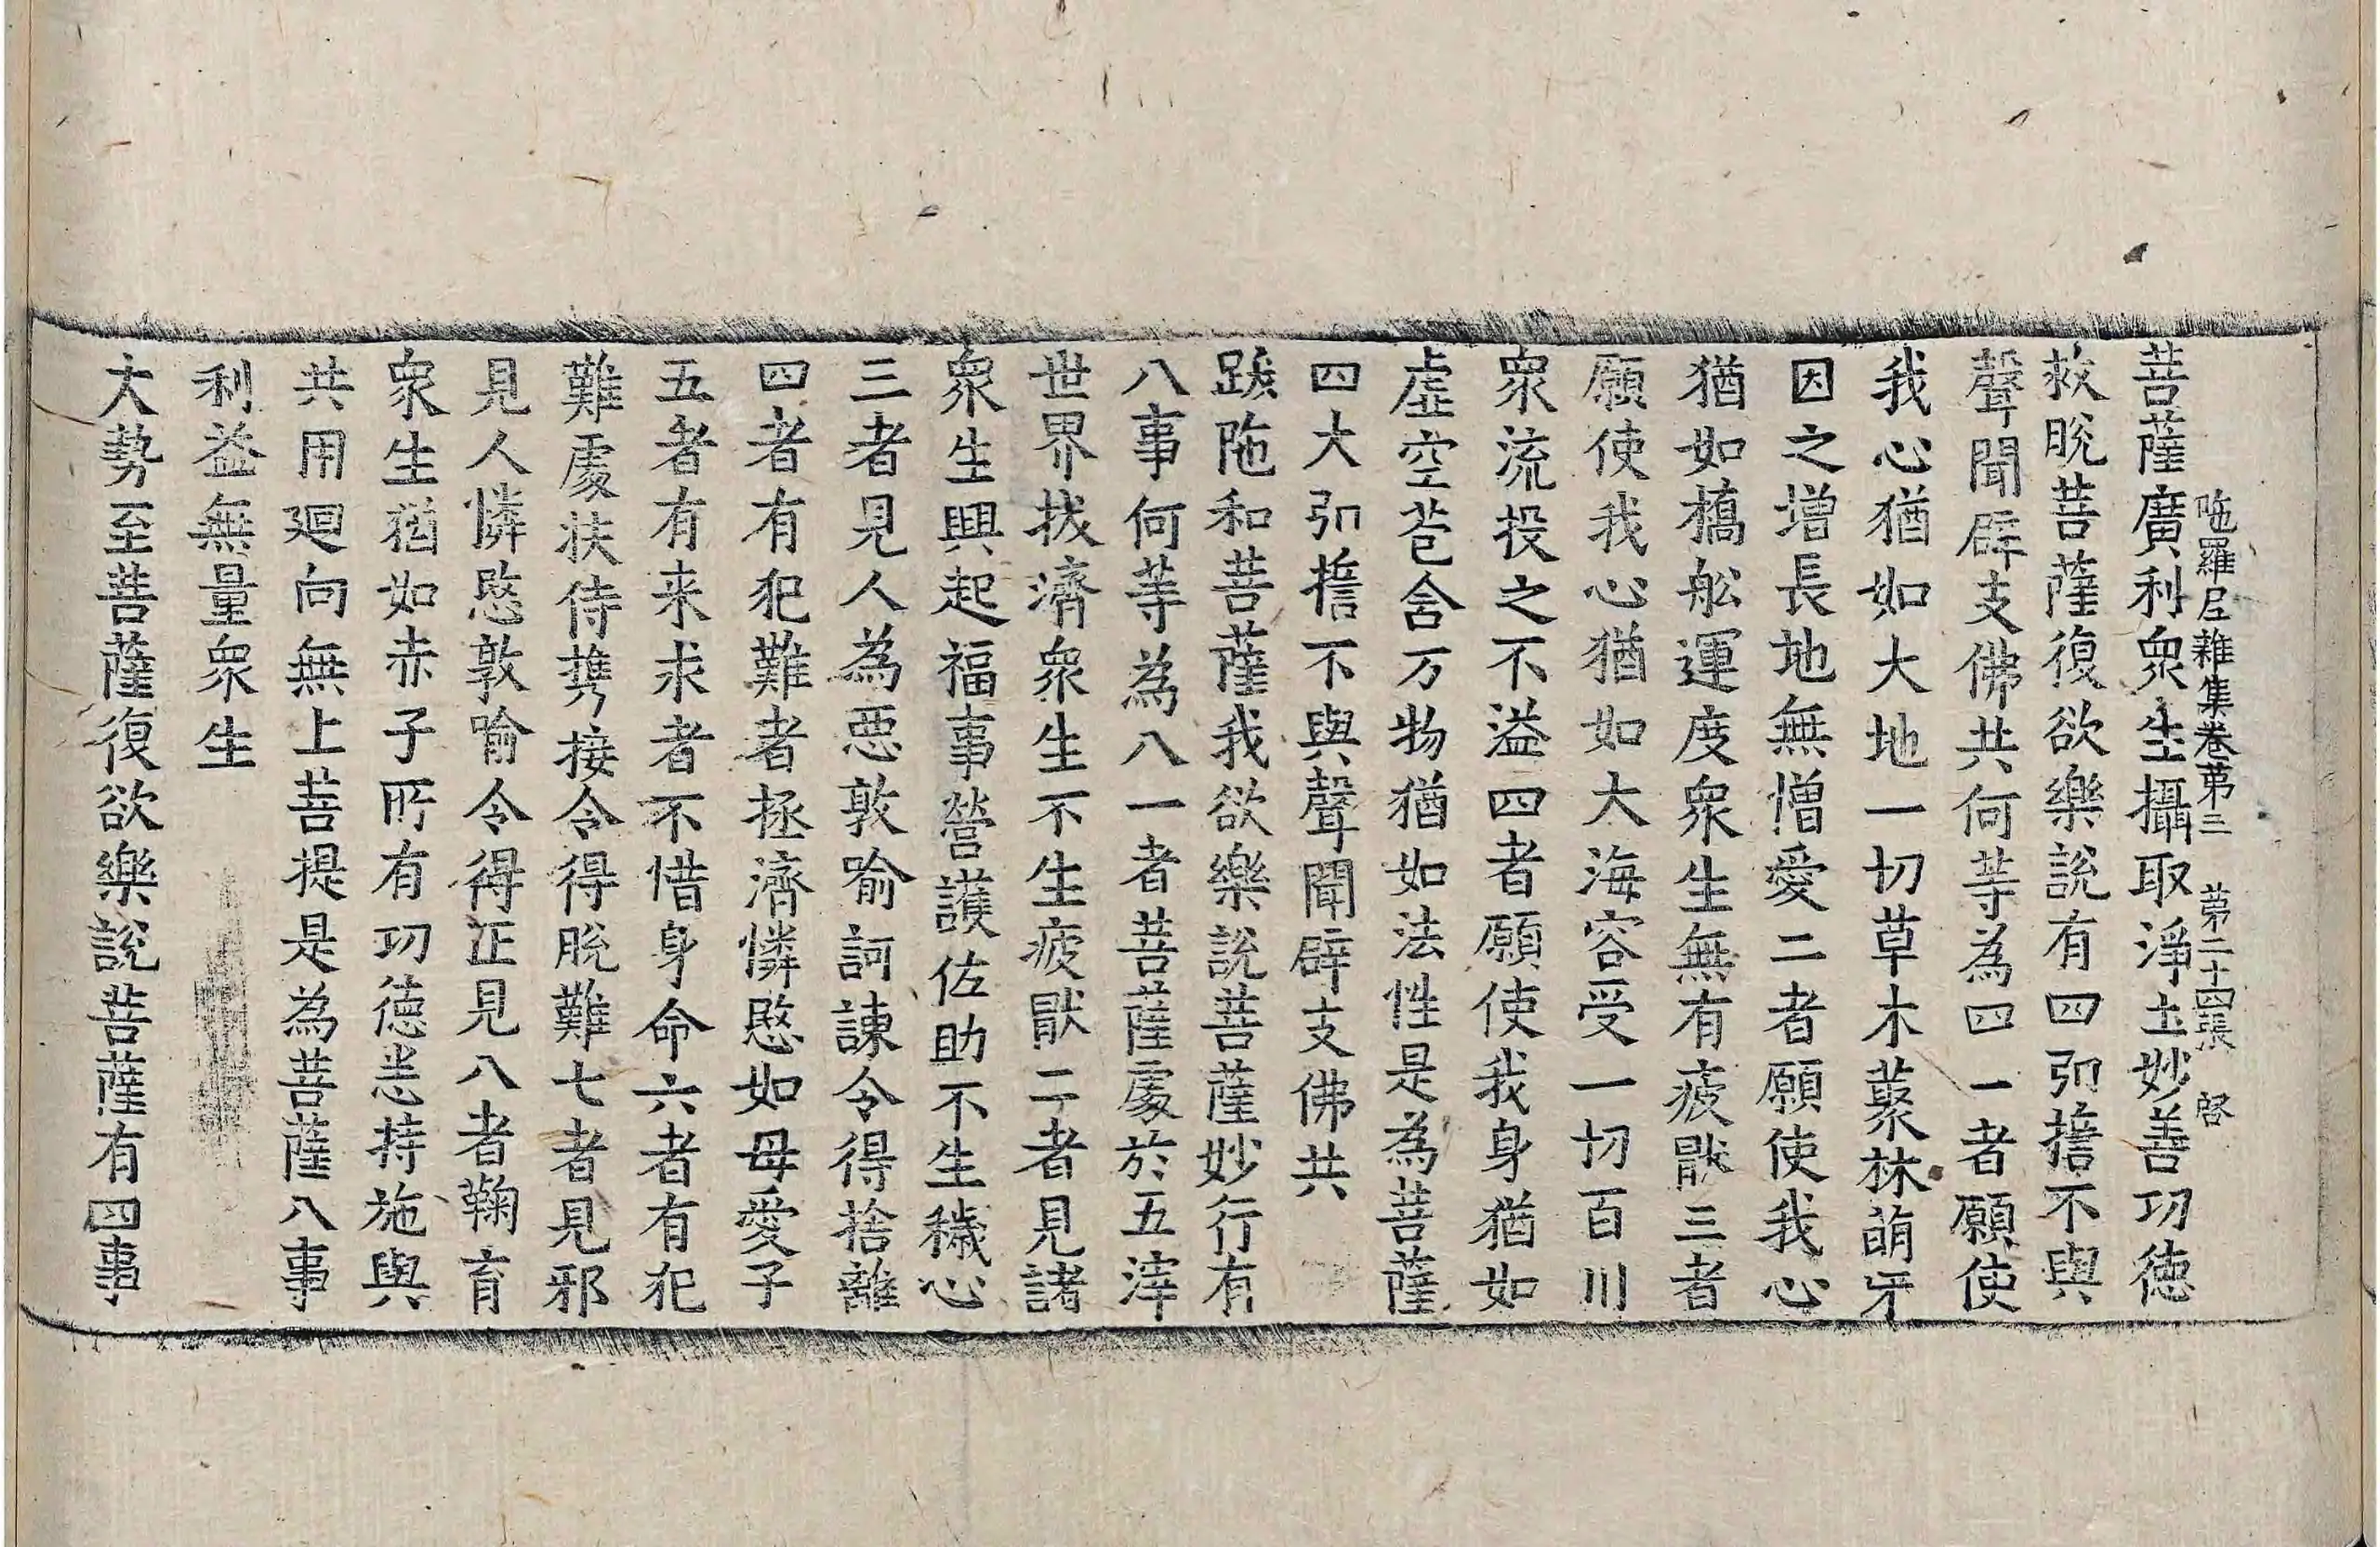 陁羅尼雜集卷第三 第二十四張 啓
菩薩廣利衆生攝取淨土妙善功徳
救脱菩薩復欲樂說有四弘擔不與
聲聞辟支佛共何等為四一者願使
我心猶如大地一切草木藂林萌牙
因之增長地無憎愛二者願使我心
猶如橋舩運度衆生無有疲猒三者
願使我心猶如大海容受一切百川
衆流投之不溢四者願使我身猶如
虛空苞含万物猶如法性是為菩薩
四大弘擔不與聲聞辟支佛共
跋陁和菩薩我欲樂說菩薩妙行有
八事何等為八一者菩薩處於五滓
世界拔濟衆生不生疲猒二者見諸
衆生興起福事營護佐助不生穢心
三者見人為惡敦喻訶諫令得捨離
四者有犯難者拯濟憐愍如母愛子
五者有来求者不惜身命六者有犯
難處扶侍攜接令得脫難七者見邪
見人憐愍敦喻令得正見八者鞠育
衆生猶如赤子所有功徳恙持施與
共用迴向無上菩提是為菩薩八事
利益無量衆生
大勢至菩薩復欲樂說菩薩有四事